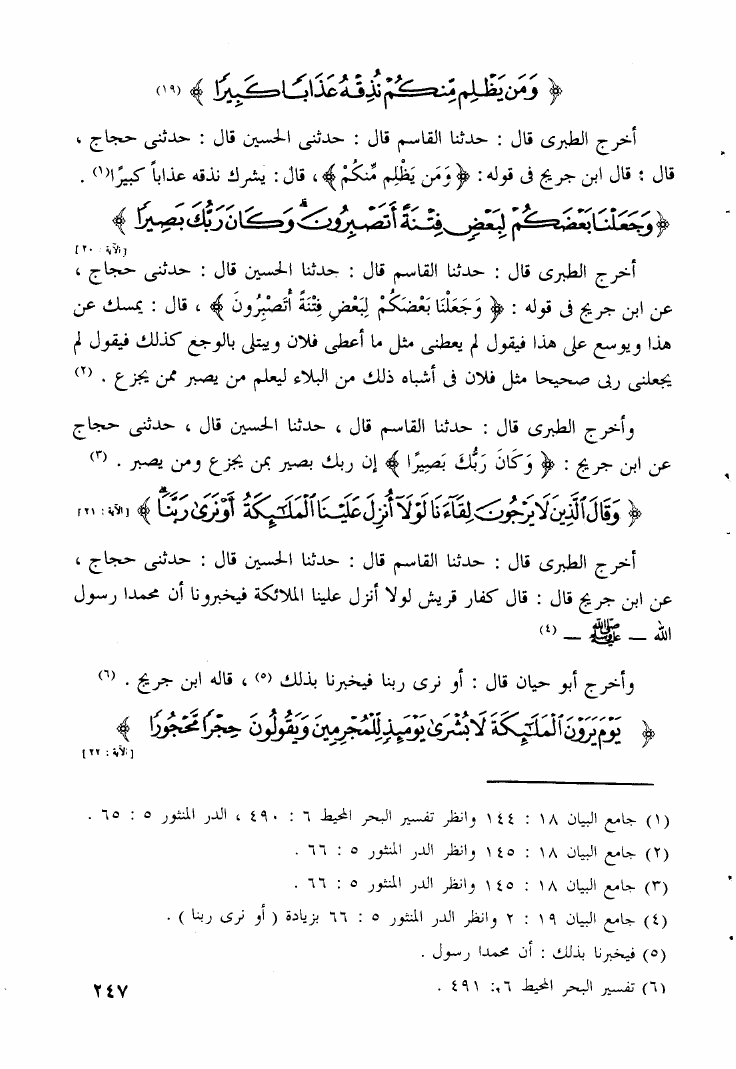 ﴿ وَمَن يَظْلِم مِّنكُمْ نُذِقْهُ عَذَابًا كَبِيرًا ﴾ (١٩)
أخرج الطبرى قال : حدثنا القاسم قال : حدثنى الحسين قال : حدثنى حجاج ،
قال : قال ابن جريج فى قوله : ﴿ وَمَن يَظْلِم مِّنكُمْ ﴾ ، قال : يشرك نذقه عذاباً كبيرًا(١) .
﴿ وَجَعَلْنَا بَعْضَكُمْ لِبَعْضٍ فِتْنَةً أَتَصْبِرُونَ ۗ وَكَانَ رَبُّكَ بَصِيرًا ﴾
[الآية : ٢٠]
أخرج الطبرى قال : حدثنا القاسم قال : حدثنا الحسين قال : حدثنى حجاج ،
عن ابن جريج فى قوله : ﴿ وَجَعَلْنَا بَعْضَكُمْ لِبَعْضٍ فِتْنَةً أَتَصْبِرُونَ ﴾ ، قال : يمسك عن
هذا ويوسع على هذا فيقول لم يعطنى مثل ما أعطى فلان ويبتلى بالوجع كذلك فيقول لم
يجعلنى ربى صحيحا مثل فلان فى أشباه ذلك من البلاء ليعلم من يصبر ممن يجزع . (٢)
وأخرج الطبرى قال : حدثنا القاسم قال ، حدثنا الحسين قال ، حدثنى حجاج
عن ابن جريج : ﴿ وَكَانَ رَبُّكَ بَصِيرًا ﴾ إن ربك بصير بمن يجزع ومن يصبر . (٣)
﴿ وَقَالَ الَّذِينَ لَا يَرْجُونَ لِقَاءَنَا لَوْلَا أُنزِلَ عَلَيْنَا الْمَلَائِكَةُ أَوْ نَرَىٰ رَبَّنَا ۗ ﴾ [الآية : ٢١]
أخرج الطبرى قال : حدثنا القاسم قال : حدثنا الحسين قال : حدثنى حجاج ،
عن ابن جريج قال : قال كفار قريش لولا أنزل علينا الملائكة فيخبرونا أن محمدا رسول
الله – ﷺ – (٤)
وأخرج أبو حيان قال : أو نرى ربنا فيخبرنا بذلك (٥) ، قاله ابن جريج . (٦)
﴿ يَوْمَ يَرَوْنَ الْمَلَائِكَةَ لَا بُشْرَىٰ يَوْمَئِذٍ لِّلْمُجْرِمِينَ وَيَقُولُونَ حِجْرًا مَّحْجُورًا ﴾
[الآية : ٢٢]
(١) جامع البيان ١٨ : ١٤٤ وانظر تفسير البحر المحيط ٦ : ٤٩٠ ، الدر المنثور ٥ : ٦٥ .
(٢) جامع البيان ١٨ : ١٤٥ وانظر الدر المنثور ٥ : ٦٦ .
(٣) جامع البيان ١٨ : ١٤٥ وانظر الدر المنثور ٥ : ٦٦ .
(٤) جامع البيان ١٩ : ٢ وانظر الدر المنثور ٥ : ٦٦ بزيادة ( أو نرى ربنا ) .
(٥) فيخبرنا بذلك : أن محمدا رسول .
(٦) تفسير البحر المحيط ٦ : ٤٩١ .
٢٤٧